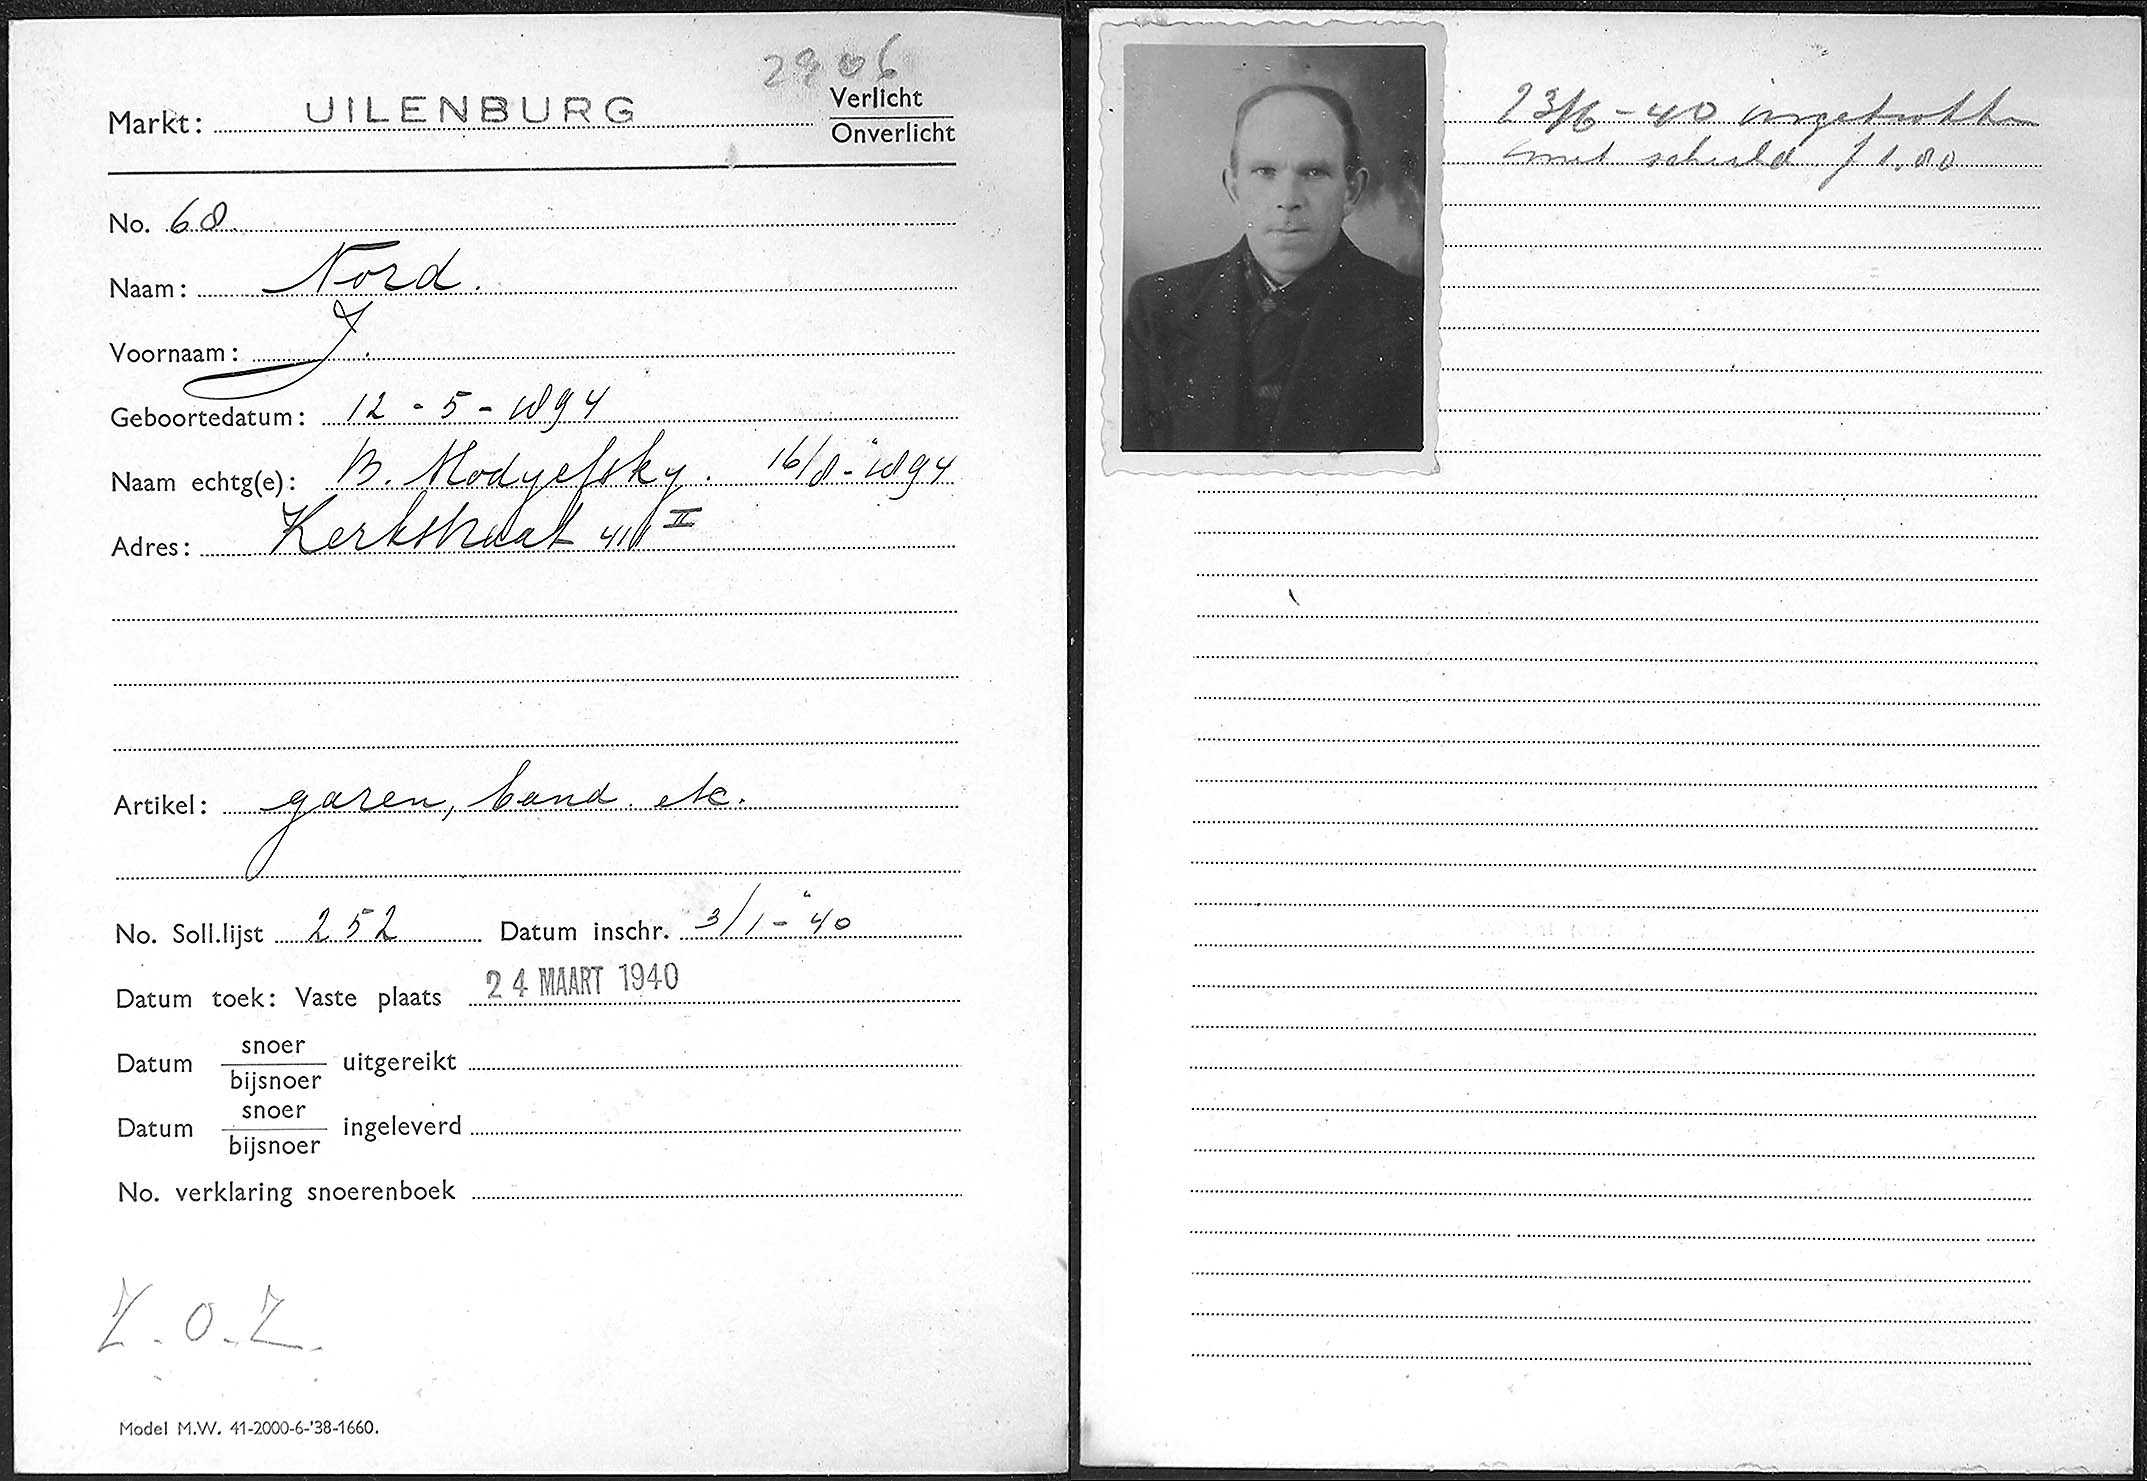 2906
Markt: UILENBURG
Verlicht
Onverlicht
No. 68
Naam: Nord.
Voornaam: J.
Geboortedatum: 12-5-1894
Naam echtg(e): B. Modyefsky. 16/8-1894
Adres: Kerkstraat II
Artikel: garen, band. etc.
No. Soll.lijst 252 Datum inschr. 3/1-'40
Datum toek: Vaste plaats 24 MAART 1940
Datum snoer/bijsnoer uitgereikt
Datum snoer/bijsnoer ingeleverd
No. verklaring snoerenboek
Z.O.Z.
Model M.W. 41-2000-6-'38-1660.
23/6-40 ingetrokken
met schuld f 1.80